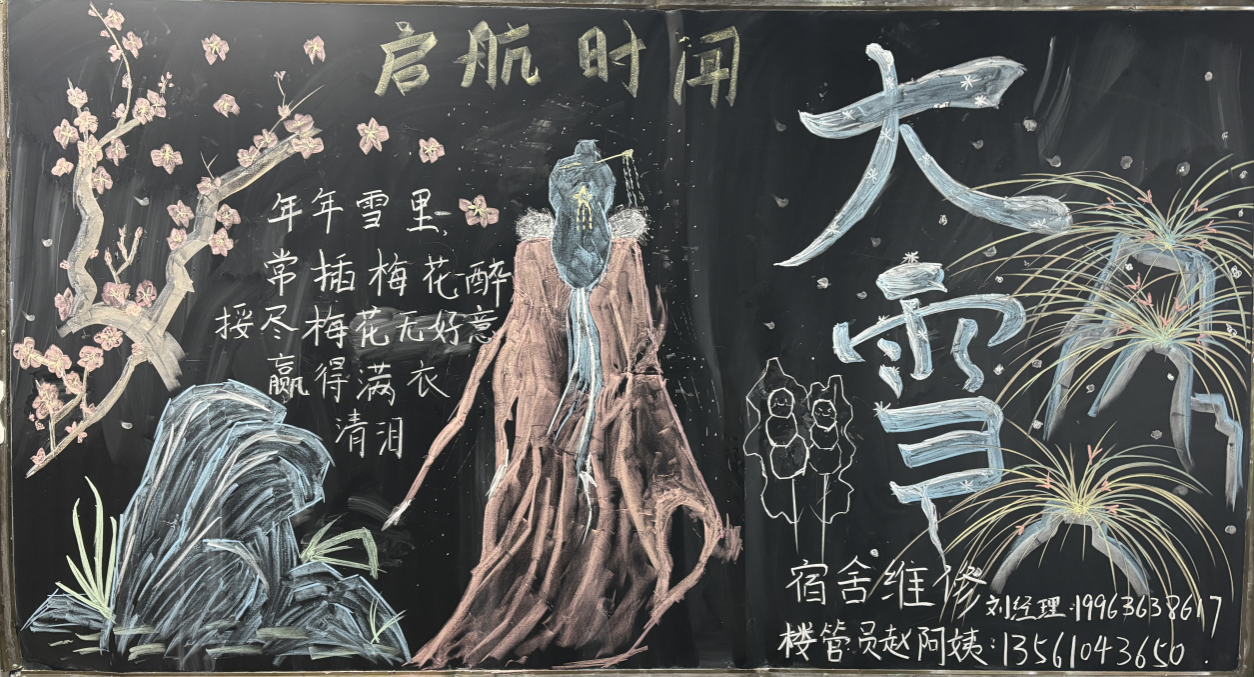 启航时间
年年雪里
常插梅花醉
挼尽梅花无好意
赢得满衣
清泪
大雪
宿舍维修
刘经理:19963638617
楼管员赵阿姨:13561043650.